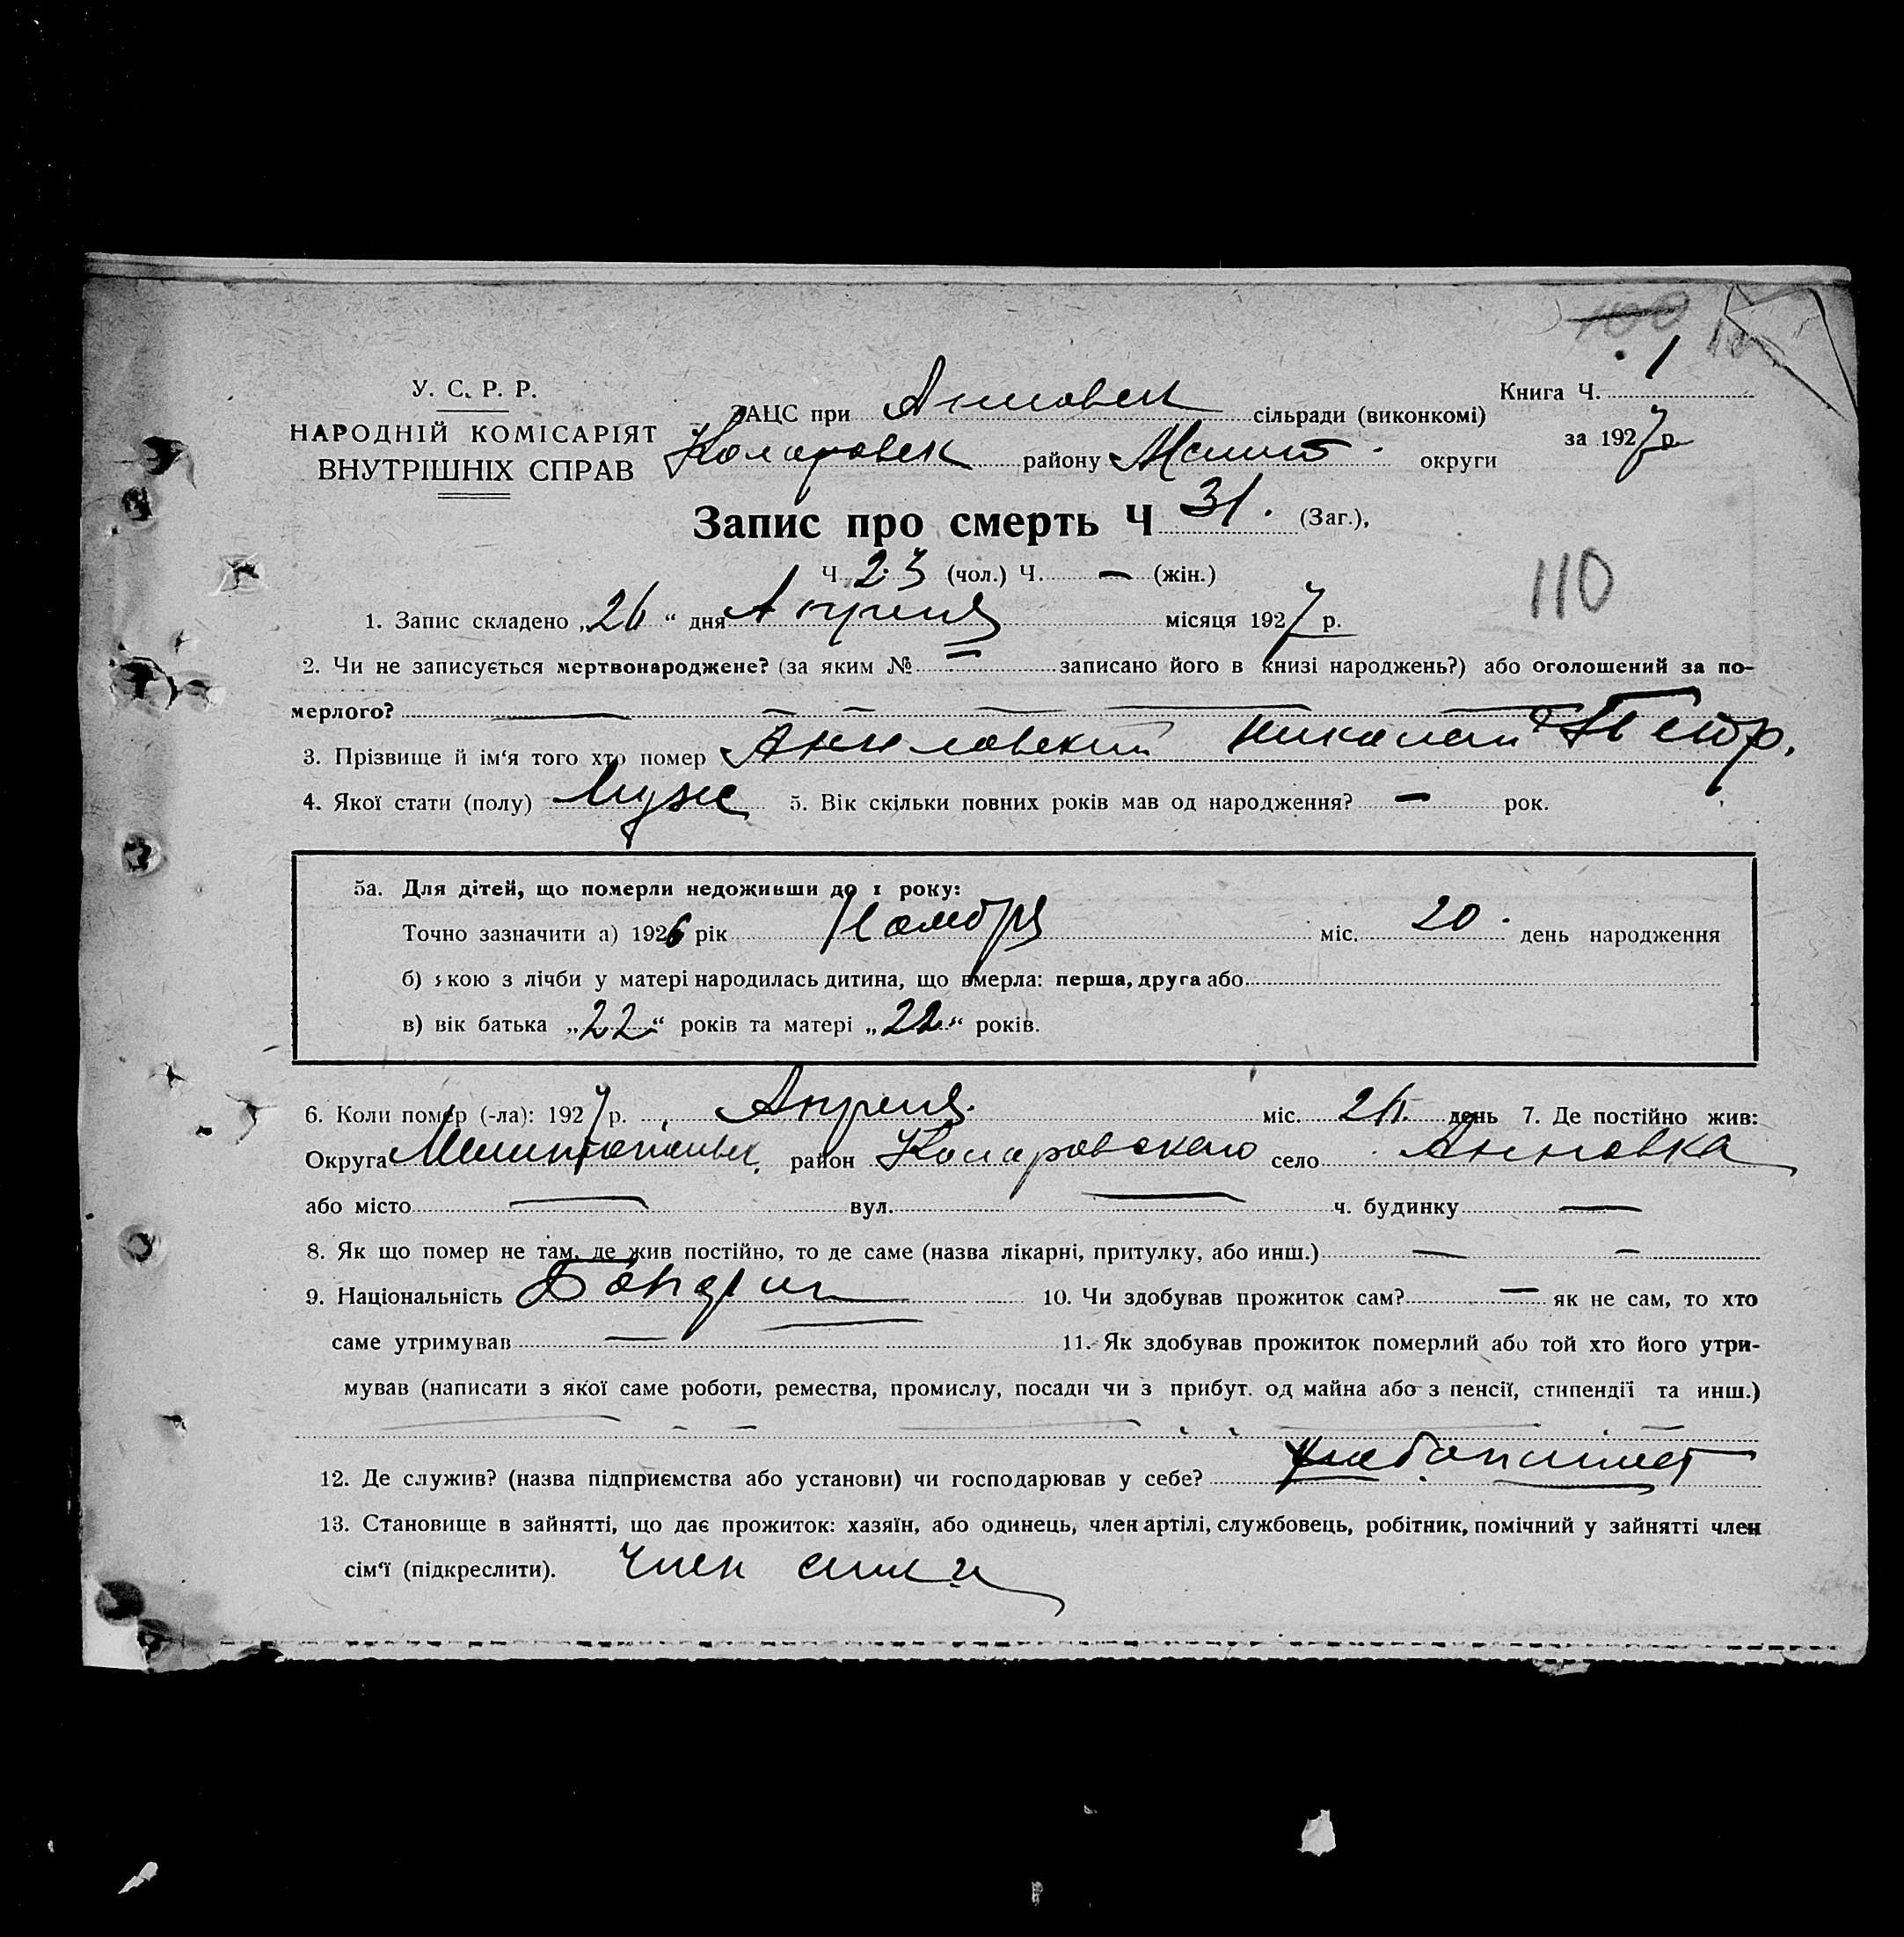 110
1
У. С. Р. Р.
НАРОДНІЙ КОМІСАРІЯТ
ВНУТРІШНІХ СПРАВ
ЗАЦС при Анновск сільради (виконкомі)
Коларовск району Мелит. округи
Книга Ч. 1
за 1927 р.
Запис про смерть Ч 31. (Заг.),
Ч 23 (чол.) Ч. — (жін.)
110
1. Запис складено „26“ дня Апреля місяця 1927 р.
2. Чи не записується мертвонароджене? (за яким № — записано його в книзі народжень?) або оголошений за по-
мерлого? —
3. Прізвище й ім'я того хто померНиколай Петр.
4. Якої стати (полу) Муж 5. Вік скільки повних років мав од народження? — рок.
5а. Для дітей, що померли недоживши до 1 року:
Точно зазначити а) 1926 рік Ноября міс. 20 день народження
б) якою з лічби у матері народилась дитина, що вмерла: перша, друга або
в) вік батька „22“ років та матері „22“ років.
6. Коли помер (-ла): 1927 р. Апреля міс. день 7. Де постійно жив:
Округа Мелитопольск. район Коларовского село Анновка
або місто — вул. — ч. будинку —
8. Як що помер не там, де жив постійно, то де саме (назва лікарні, притулку, або инш.) — —
9. Національність Болгарин 10. Чи здобував прожиток сам? — як не сам, то хто
саме утримував — — 11. Як здобував прожиток померлий або той хто його утри-
мував (написати з якої саме роботи, ремества, промислу, посади чи з прибут. од майна або з пенсії, стипендії та инш.)
12. Де служив? (назва підприємства або установи) чи господарював у себе? хлебопашест
13. Становище в зайнятті, що дає прожиток: хазяїн, або одинець, член артілі, службовець, робітник, помічний у зайнятті член
сім'ї (підкреслити). Член сим'и